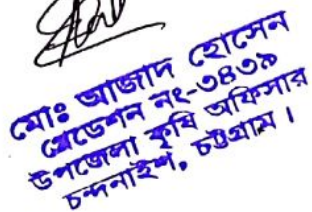 মোঃ আজাদ হোসেন
গ্রেডেশন নং-৩৪৩৯
উপজেলা কৃষি অফিসার
চন্দনাইশ, চট্টগ্রাম।